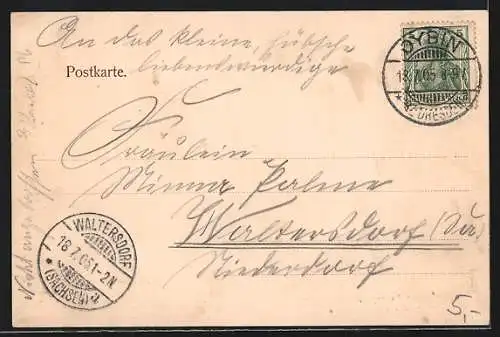 An das kleine, hübsche
liebenswürdige
Postkarte.
OYBIN
18.7.05. 8-9V.
Fräulein
Minna Palme
Waltersdorf (Sa)
Niederdorf
WALTERSDORF
18.7.05.1-2N
* (SACHSEN) *
5,-